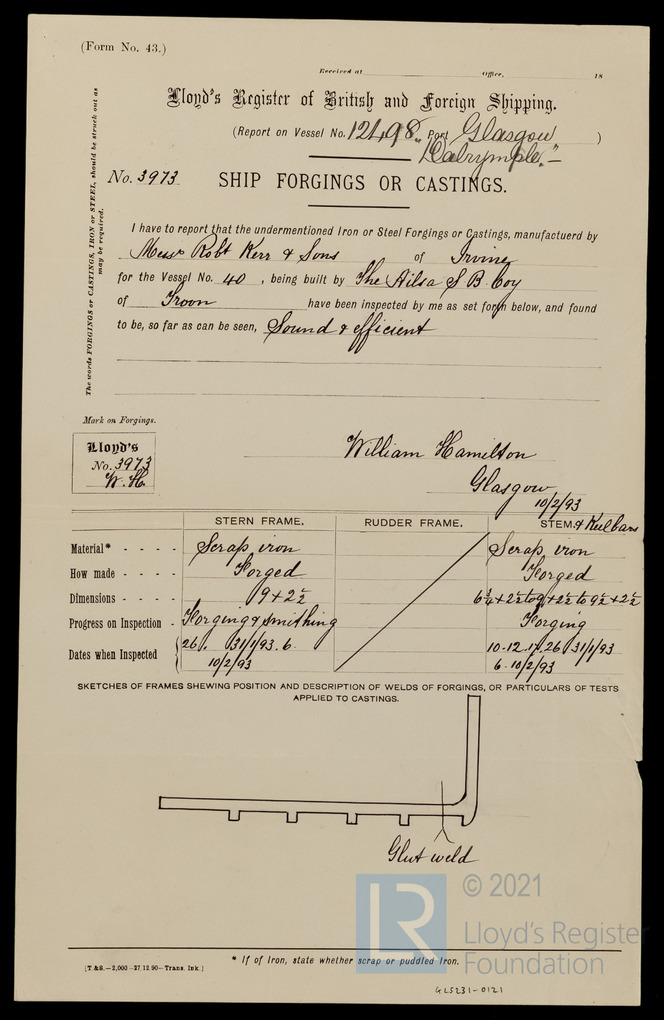 (Form No. 43.)
Received at Office, 18
Lloyd's Register of British and Foreign Shipping.
(Report on Vessel No. 12498 Port Glasgow )
"Dalrymple."
No. 3973 SHIP FORGINGS OR CASTINGS.
The words FORGINGS or CASTINGS, IRON or STEEL, should be struck out as may be required.
I have to report that the undermentioned Iron or Steel Forgings or Castings, manufactuerd by
Messrs Robt Kerr & Sons of Irvine
for the Vessel No. 40, being built by The Ailsa S B. Coy
of Troon have been inspected by me as set forth below, and found
to be, so far as can be seen, Sound & efficient
Mark on Forgings.
Lloyd's
No. 3973
W. H.
William Hamilton
Glasgow
10/2/93
STERN FRAME. RUDDER FRAME. STEM. & Keelbars
Material* - - - - Scrap iron Scrap iron
How made - - - - Forged Forged
Dimensions - - - - 9 + 2½ 6¾ + 2½ to 9 + 2½ to 9½ + 2½
Progress on Inspection - Forging & smithing Forging
Dates when Inspected - 26. 31/1/93. 6. 10.12.17.26 31/1/93
10/2/93 6.10/2/93
SKETCHES OF FRAMES SHEWING POSITION AND DESCRIPTION OF WELDS OF FORGINGS, OR PARTICULARS OF TESTS
APPLIED TO CASTINGS.
Glut weld
LR © 2021
Lloyd's Register
Foundation
* If of Iron, state whether scrap or puddled Iron.
[T &S.—2,000—27.12.90—Trans. Ink.]
GLS231-0121